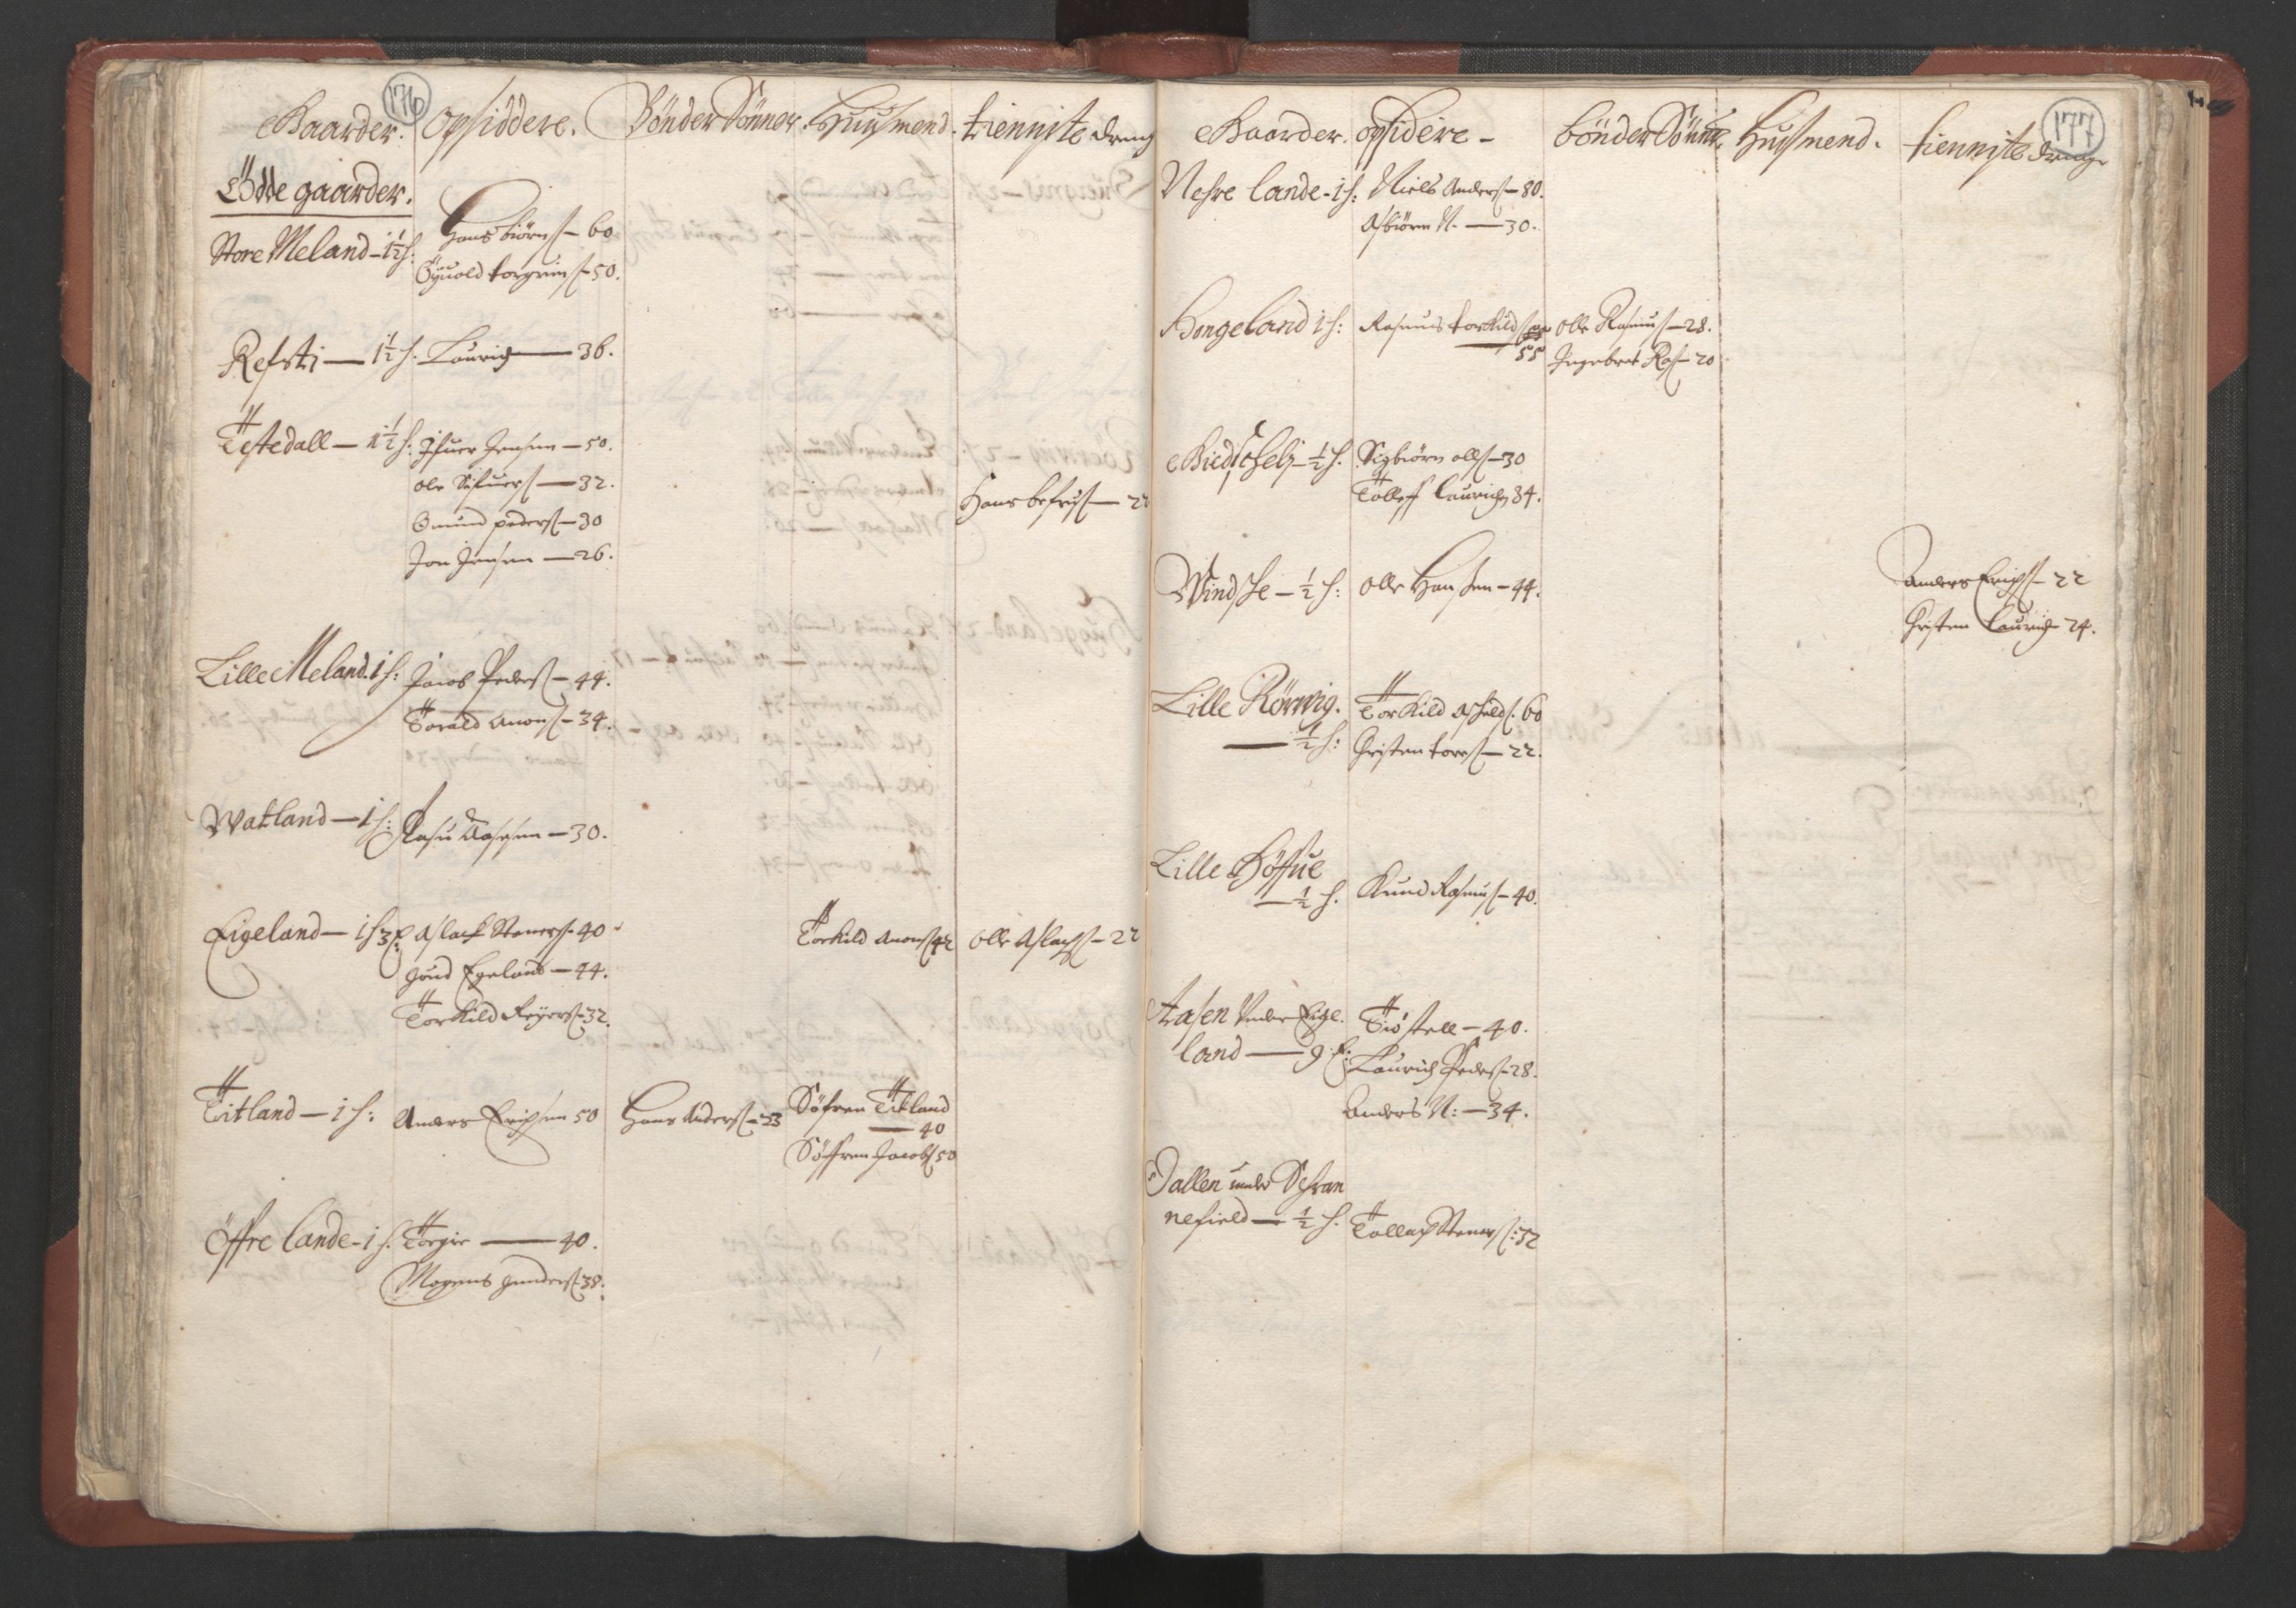 176
Gaarder. Opsiddere. Bönder Sönner. Huusmend. tienniste dreng
Ödde gaarder.
Store Meland - 1½ h: Hans biörns - 60
Öÿuold torgrims - 50.
Refsti - 1½ h. Laurids - 36.
Testedall - 1½ h: Jfuer Jensen - 50.
Ole Sifuers - 32.
Hans - 22
Omund peders - 30
Jon Jensen - 26.
Lille Meland. 1 h: Jacob Peders - 44.
Torald Anons - 34.
Watland - 1 h: Rasmus Aasesen - 30.
Eigeland - 1 h 3 Aslach Steners - 40. Torkild Anons 42 Olle Aslachs - 22
Gund Egeland - 44.
Torkild Reÿers - 32.
Titland - 1 h: Anders Erichsen 50 Hans Anders - 23 Söfren Titland
- 40
Söffren Jacobs 50
Öffre Lande - 1 h. Torgir - 40.
Mogens gunders - 38.
177
Gaarder. opsidere - bönder Sönner Husmend. tienniste drenge
Nehre Lande - 1 h: Niels Anders - 80.
Asbiörn N. - 30.
Hongeland 1 h: Rasmus torkilds Olle Rasmus - 28.
55 Ingebret Ras - 20
- ½ h. Sigbiörn olls - 30
Tolleff Laurids 34.
Windsse - ½ h: Olle Hansen - 44. Anders Erichs - 22
Christen Laurids 24.
Lille Rörwig. Torkild Askilds. 60
- ½ h: Christen tores - 22.
Lille Höffue
- ½ h. Knud Rasmus - 40.
Aasen Under Eige-
land - 9 Tiöstell - 40.
Laurids Peders - 28.
Anders N: - 34.
Dallen under Schran
nefield - ½ h. Tollach Steners: 52